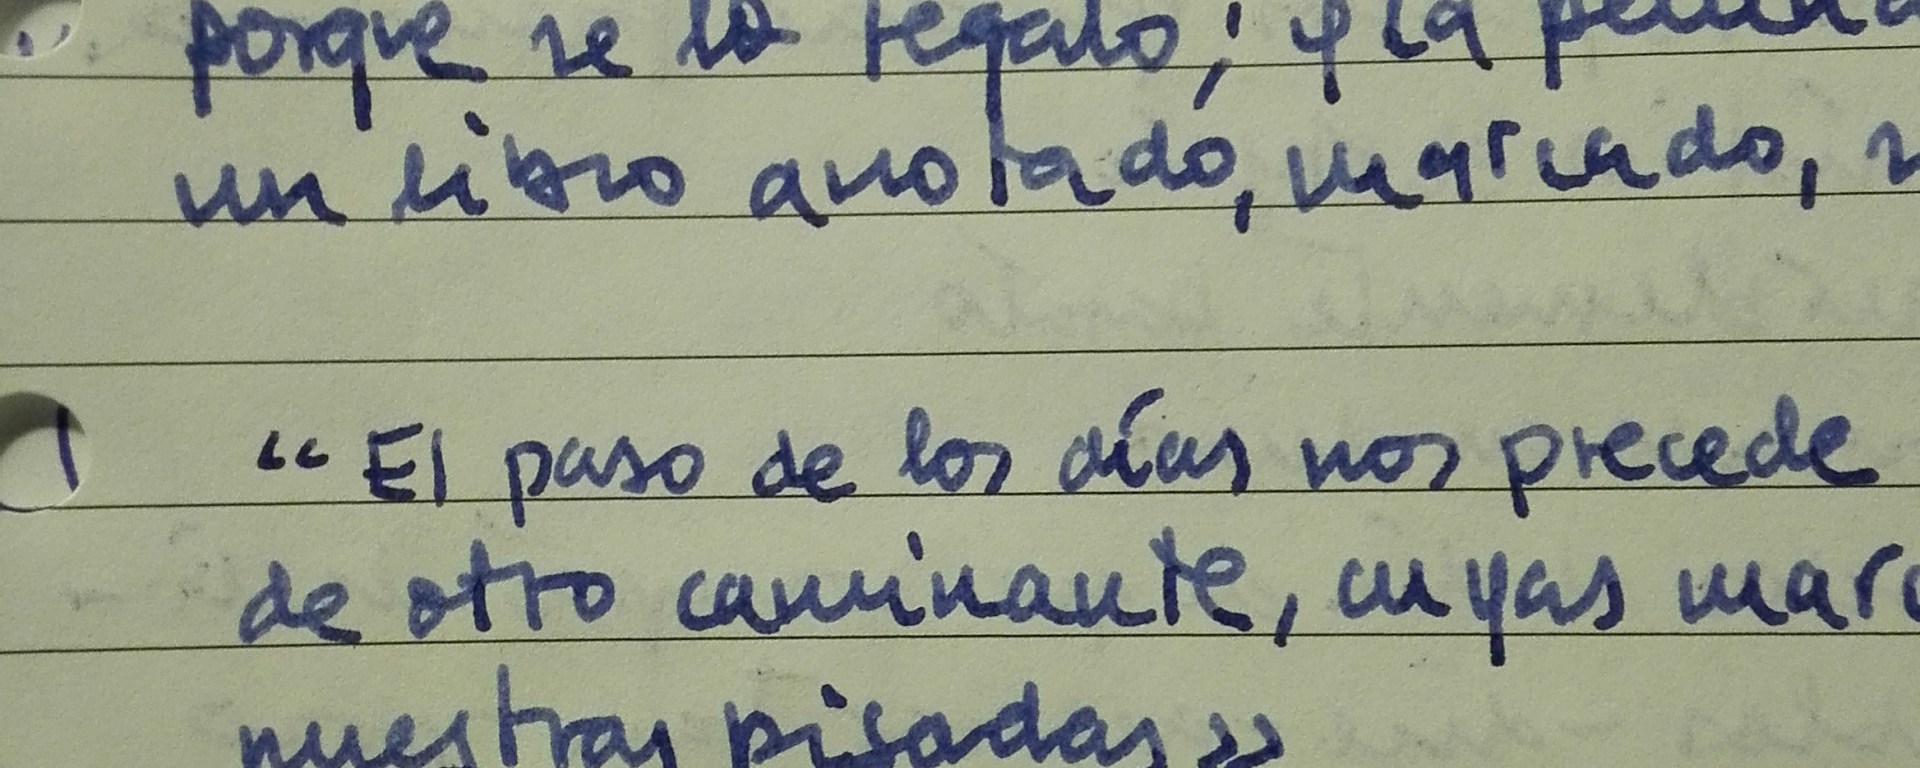 porque se lo regaló; y la
un libro anotado, marcado,
“El paso de los días nos precede
de otro caminante, cuyas
nuestras pisadas»